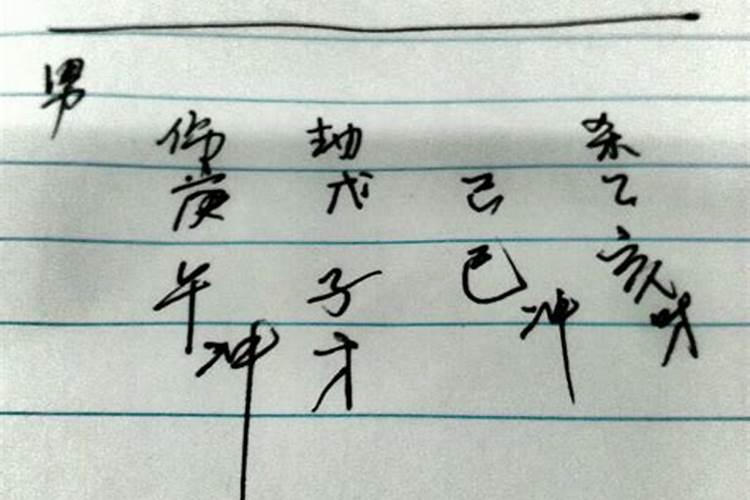 男
伤 劫 杀
庚 戊 己 乙
午 子 巳 亥
冲 才 冲 財